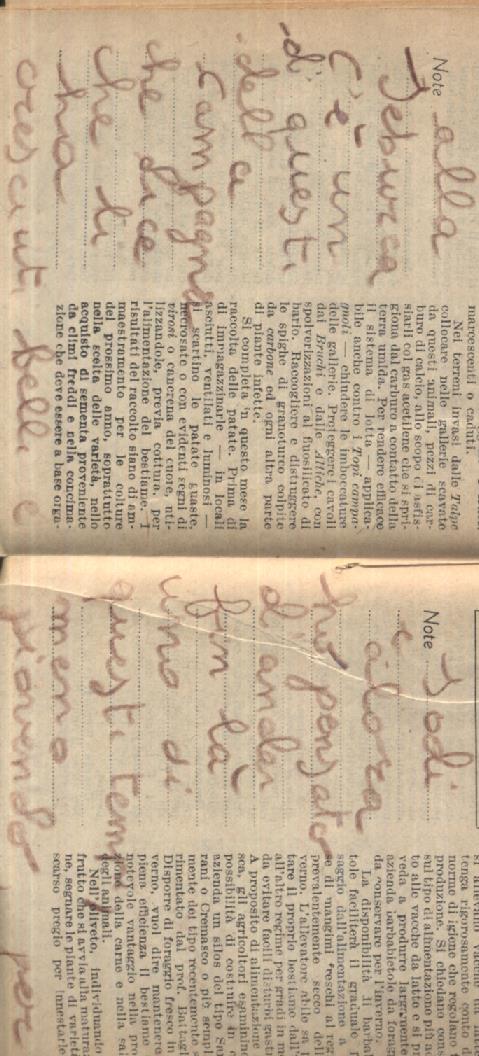 Note alla
C'è un
di questi
della
campagna
che dice
che li
ha
marcescenti o caduti.
Nei terreni invasi dalle Talpe
collocare nelle gallerie scavate
da questi animali, pezzi di car-
buro di calcio, allo scopo di asfis-
siarli col gas acetilene che si spri-
giona dal carburo a contatto della
terra umida. Per rendere efficace
il sistema di lotta — applica-
bile anche contro i Topi campa-
gnoli — chiudere le imboccature
delle gallerie. Proteggere i cavoli
dai Bruchi e dalle Altiche, con
spolverizzazioni al fluosilicato di
bario. Raccogliere e distruggere
le spighe di granoturco colpite
da carbone ed ogni altra parte
di piante infette.
Si completa in questo mese la
raccolta delle patate. Prima di
di immagazzinarle — in locali
asciutti, ventilati e luminosi —
si scartino le patate guaste,
necrosate o con evidenti segni di
virosi o cancrena del cuore, uti-
lizzandole, previa cottura, per
l'alimentazione del bestiame. I
risultati del raccolto siano di am-
maestramento per le colture
del prossimo anno, soprattutto
nella scelta delle varietà, nello
acquisto sementa proveniente
da climi freddi e nella concima-
zione che deve essere a base orga-
Note
e alora
ho pensato
d'andar
fin là
uno di
questi tem
meno
piovendo per
si allevano vacche da latte
tenga rigorosamente conto d
norme di igiene che regolano
produzione. Si chiedano cons
sul tipo di alimentazione più a
to alle vacche da latte e si p
veda a produrre largamente
azienda barbabietole da foragg
da conservare per l'inverno.
La disponibilità di barba
tole faciliterà il graduale p
saggio dall'alimentazione a
se di mangimi freschi al reg
prevalentemente secco dell
verno. L'allevatore abile sa t
tare il proprio bestiame dall
all'altro regime per gradi in m
da evitare facili disturbi gast
A proposito di alimentazione
sca, gli agricoltori esaminino
possibilità di costruire in o
azienda un silos del tipo Sa
rani o Cremasco o più semp
mente del tipo recentemente s
rimentato dal prof. Battagli
Disporre di foraggio fresco in
verno, vuol dire mantenere
piena efficienza il bestiame
notevole vantaggio nella pro
zione della carne e nella sa
degli animali.
Nell'oliveto, individuando
frutto che si avvia alla matura
ne, segnare le piante di varietà
scarso pregio per innestarle